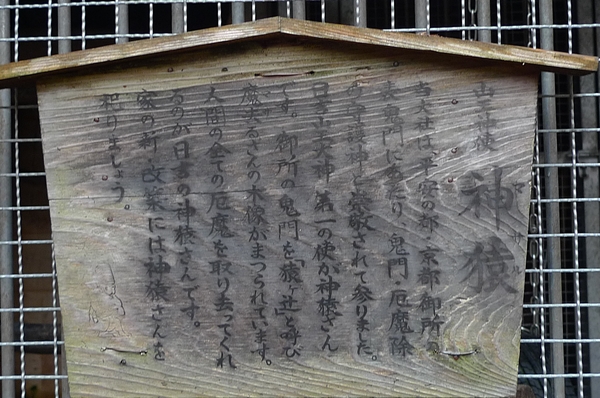 山王の使
神猿
当大社は、平安の都、京都御所の
表鬼門にあたり、鬼門・厄魔除
の守護神と崇敬されて参りました。
日吉山王大神、第一の使が神猿さん
です。御所の鬼門を「猿ヶ辻」と呼び
魔去るさんの木像がまつられています。
人間の全ての厄魔を取り去ってくれ
るのが日吉の神猿さんです。
家の新・改築には神猿さんを
祀りましょう。